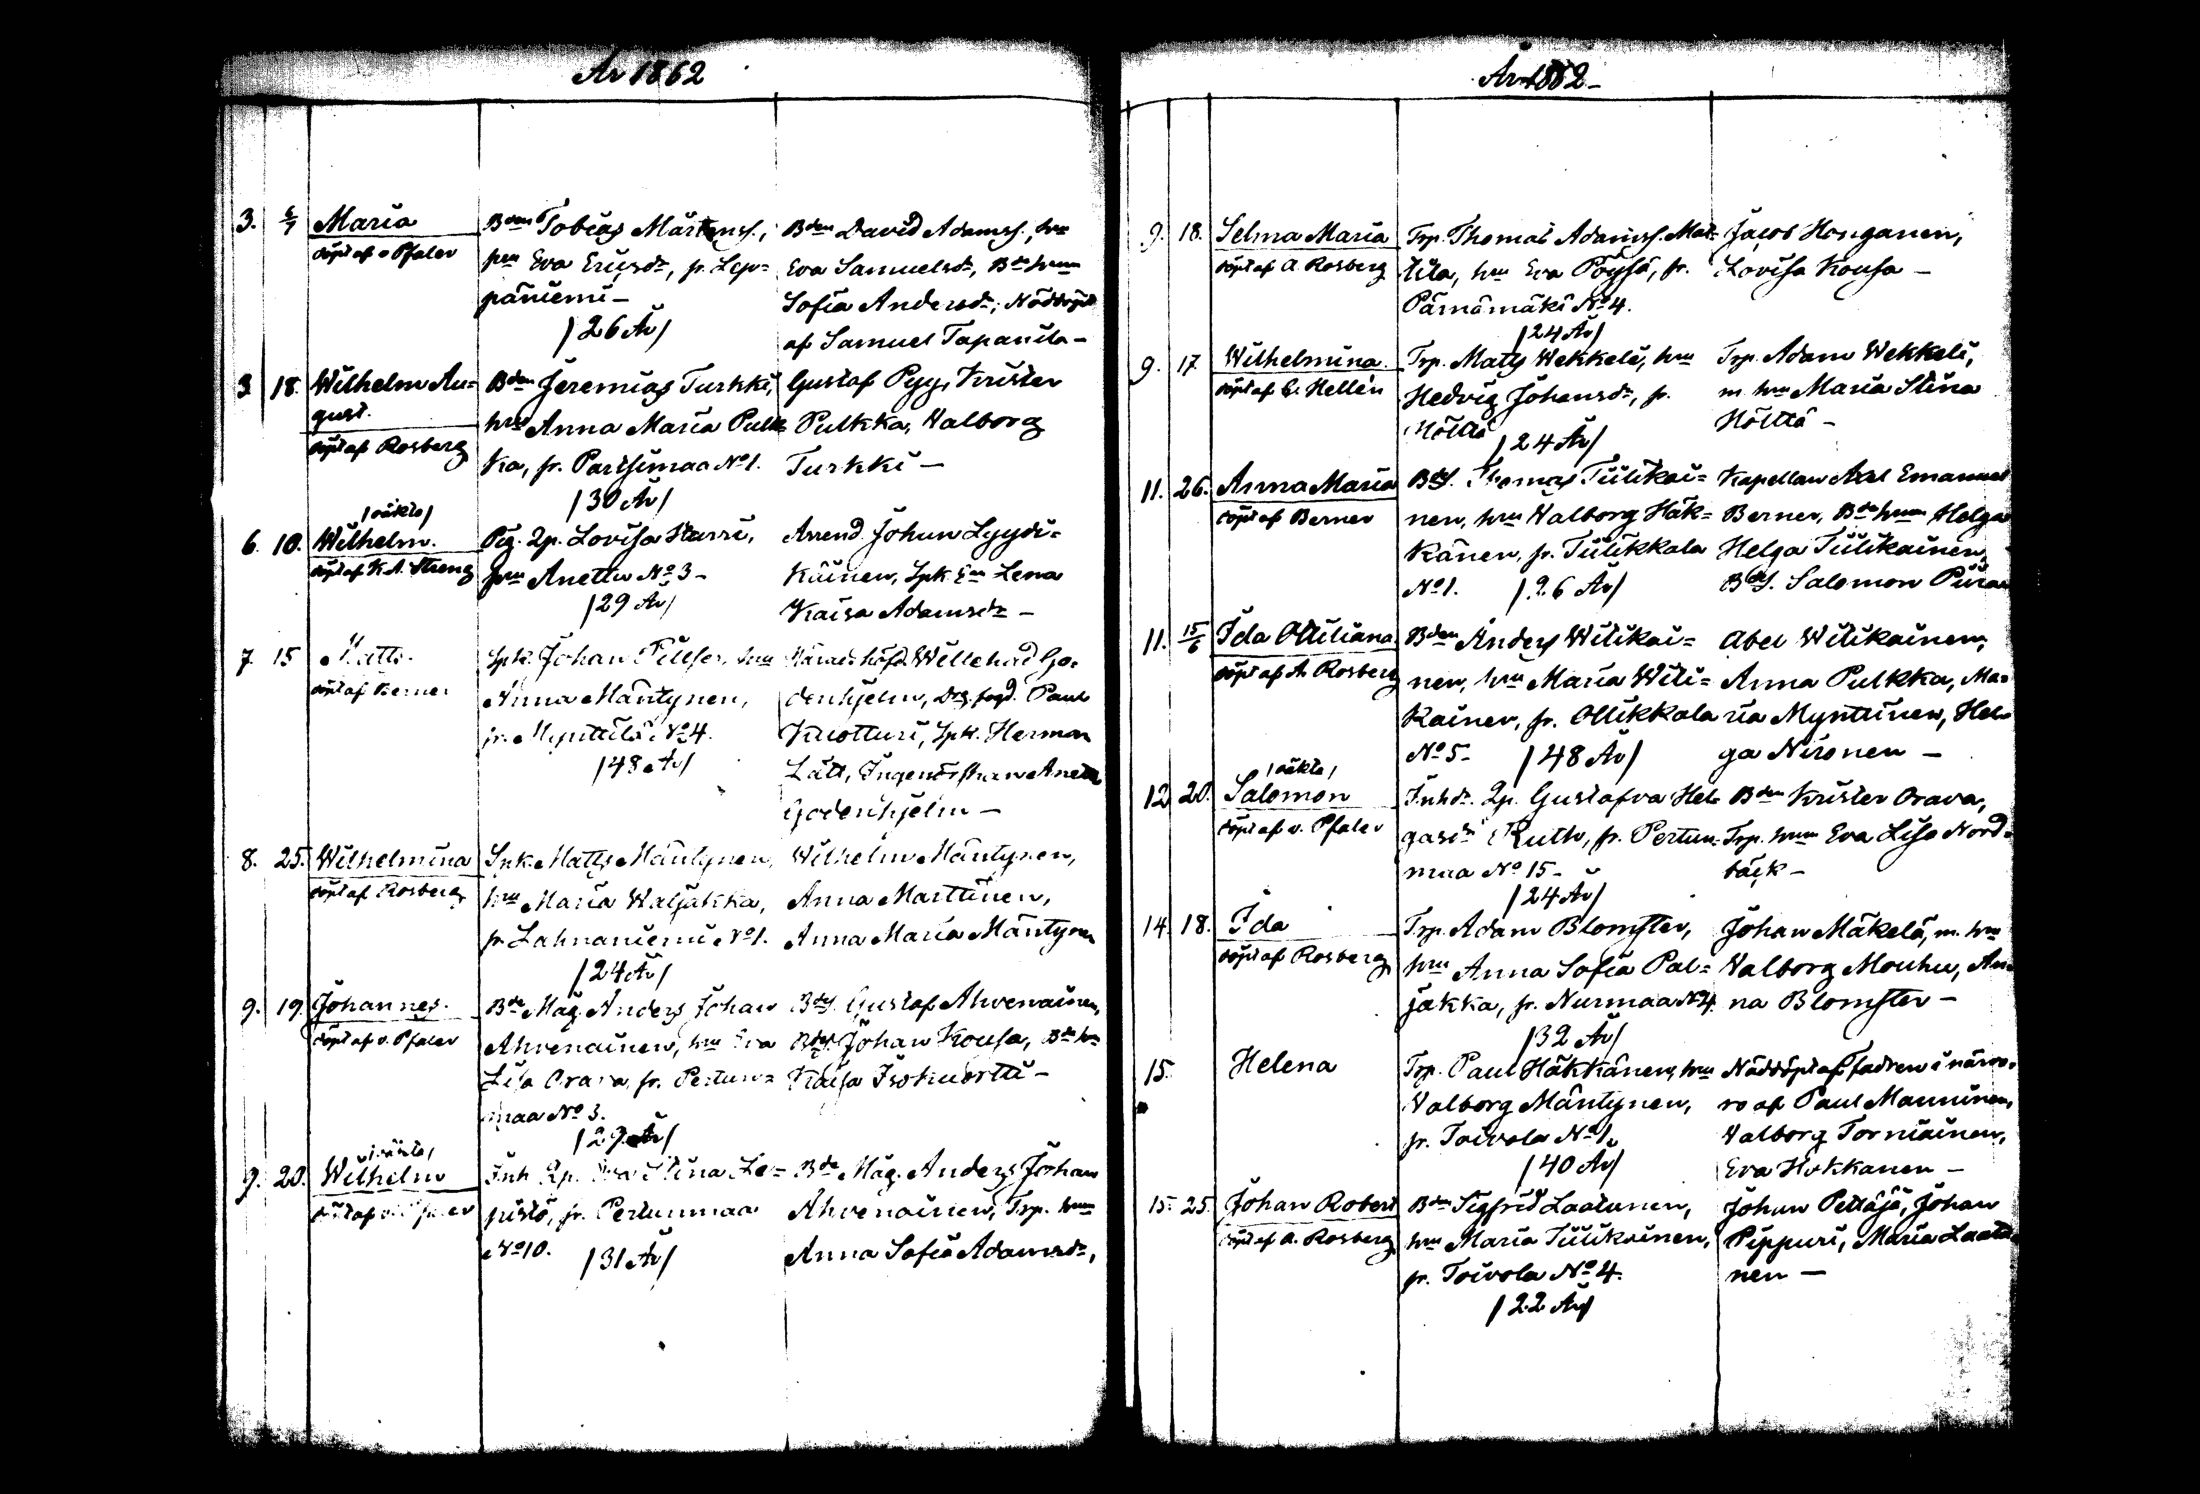 År 1862
3. 6/7 Maria
döpt af v Pfaler
Bden Tobias Mårtenss.,
hru Eva Ericsdr, fr. Lep=
päniemi —
/26 År/
Bden David Adamss., hru
Eva Samuelsdr, Bde hrun
Sofia Andersdr; Nöddöpt
af Samuel Tapanila —
3 18. Wilhelm Au=
gust.
döpt af Rosberg
Bden Jeremias Turkki,
hru Anna Maria Pulk=
ka, fr. Partsimaa No 1.
/30 År/
Gustaf Pyy, Krister
Pulkka, Walborg
Turkki —
6. 10. /oäkta/
Wilhelm.
döpt af K. A. Streng
Pig. Qp. Lovisa Harri,
frm Anettu No 3 —
/29 År/
Arrend. Johan Lyydi=
käinen, Spk. En Lena
Kaisa Adamsdr —
7. 15 Matts.
döpt af Berner
Spk. Johan Pillfer, hru
Anna Mäntynen,
fr. Mynttilä No 4.
/48 År/
Häradshöfd. Willehad Go=
denhjelm, Drg. fogd. Paul
Knotturi, Spk. Herman
Lätt, Ingeniörsfrun Aneta
Godenhjelm —
8. 25. Wilhelmina
döpt af Rosberg
Spk Matts Mäntynen,
hru Maria Waljakka,
fr Lahnaniemi No 1.
/24 År/
Wilhelm Mäntynen,
Anna Marttinen,
Anna Maria Mäntynen
9. 19. Johannes.
döpt af v. Pfaler
Bde Måg. Anders Johan
Ahvenainen, hru Eva
Lisa Orava, fr. Pertun=
maa No 3.
/29 År/
Bdes. Gustaf Ahvenainen,
Bdes. Johan Kousa, Bde hru
Kaisa Isokuortti —
9. 20. /oäkta/
Wilhelm
döpt af v. Pfaler
Inh Qp. Eva Stina Le=
pistö, fr. Pertunmaa
No 10. /31 År/
Bde Måg. Anders Johan
Ahvenainen, Trp. hrun
Anna Sofia Adamsdr,
År 1862 —
9. 18. Selma Maria
döpt af A. Rosberg
Trp. Thomas Adamss. Mat=
tila, hru Eva Pöysä, fr.
Pärnämäki No 4.
/24 År/
Jacob Honganen,
Lovisa Kousa —
9. 17. Wilhelmina.
döpt af C. Hellén
Trp. Mats Wekkeli, hru
Hedvig Johansdr, fr.
Hölttä
/24 År/
Trp. Adam Wekkeli,
m. hru Maria Stina
Hölttä —
11. 26. Anna Maria
döpt af Berner
Bdes. Thomas Tiilikai=
nen, hru Walborg Häk=
känen, fr. Tiilikkala
No 1. /26 År/
Kapellan Axel Emanuel
Berner, Bde hrun Helga
Helga Tiilikainen,
Bdes. Salomon Piira
11. 15/6 Ida Ottiliana
döpt af A. Rosberg
Bden Anders Wilikai=
nen, hru Maria Wili=
kainen, fr. Ollikkala
No 5 — /48 År/
Abel Wilikainen,
Anna Pulkka, Ma=
ria Mynttinen, Hel=
ga Nironen —
12. 20. /oäkta/
Salomon
döpt af v. Pfaler
Inhdr. Qp. Gustafva Hel=
gasdr Ruth, fr. Pertun=
maa No 15 —
/24 År/
Bden Krister Orava,
Trp. hrun Eva Lisa Nord=
bäck —
14. 18. Ida
döpt af Rosberg
Trp. Adam Blomster,
hru Anna Sofia Pal=
jakka, fr. Nurmaa No 4.
/32 År/
Johan Mäkelä, m. hru
Walborg Mouhu, An=
na Blomster —
15. Helena
Trp. Paul Häkkänen, hru
Walborg Mäntynen,
fr. Toivola No 1.
/40 År/
Nöddöpt af fadren i närva=
ro af Paul Manninen,
Walborg Torniainen,
Eva Hokkanen —
15. 25. Johan Robert
döpt af A. Rosberg
Bden Sigfrid Laatunen,
hru Maria Tiilikainen,
fr. Toivola No 4.
/22 År/
Johan Peltäjä, Johan
Pippuri, Maria Laatu=
nen —